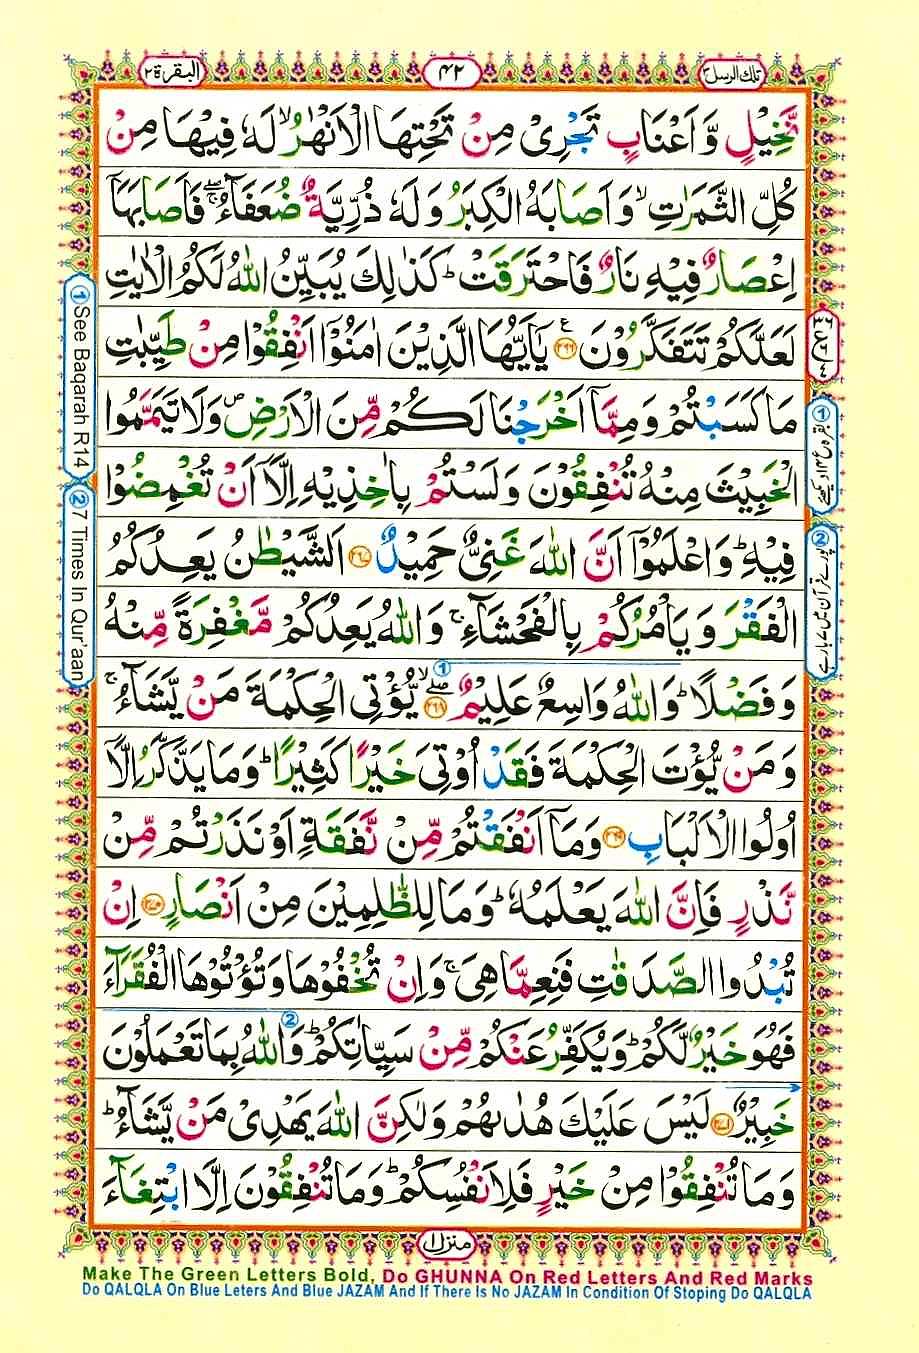 تلك الرسل ٣
٤٢
البقرة ٢
نَّخِيْلٍ وَّ اَعْنَابٍ تَجْرِىْ مِنْ تَحْتِهَا الْاَنْهٰرُ ۙ لَهٗ فِيْهَا مِنْ
كُلِّ الثَّمَرٰتِ ۙ وَ اَصَابَهُ الْكِبَرُ وَ لَهٗ ذُرِّيَّةٌ ضُعَفَآءُ ۖۚ فَاَصَابَهَاۤ
اِعْصَارٌ فِيْهِ نَارٌ فَاحْتَرَقَتْ ؕ كَذٰلِكَ يُبَيِّنُ اللّٰهُ لَكُمُ الْاٰيٰتِ
لَعَلَّكُمْ تَتَفَكَّرُوْنَ ﴿۲۶۶﴾ يٰۤاَيُّهَا الَّذِيْنَ اٰمَنُوْۤا اَنْفِقُوْا مِنْ طَيِّبٰتِ
مَا كَسَبْتُمْ وَ مِمَّاۤ اَخْرَجْنَا لَكُمْ مِّنَ الْاَرْضِ ۪ وَ لَا تَيَمَّمُوا
الْخَبِيْثَ مِنْهُ تُنْفِقُوْنَ وَ لَسْتُمْ بِاٰخِذِيْهِ اِلَّاۤ اَنْ تُغْمِضُوْا
فِيْهِ ؕ وَ اعْلَمُوْۤا اَنَّ اللّٰهَ غَنِىٌّ حَمِيْدٌ ﴿۲۶۷﴾ اَلشَّيْطٰنُ يَعِدُكُمُ
الْفَقْرَ وَ يَاْمُرُكُمْ بِالْفَحْشَآءِ ۚ وَ اللّٰهُ يَعِدُكُمْ مَّغْفِرَةً مِّنْهُ
وَ فَضْلًا ؕ وَ اللّٰهُ وَاسِعٌ عَلِيْمٌ ﴿۲۶۸﴾ ۖۙ يُّؤْتِى الْحِكْمَةَ مَنْ يَّشَآءُ ۚ
وَ مَنْ يُّؤْتَ الْحِكْمَةَ فَقَدْ اُوْتِىَ خَيْرًا كَثِيْرًا ؕ وَ مَا يَذَّكَّرُ اِلَّاۤ
اُولُوا الْاَلْبَابِ ﴿۲۶۹﴾ وَ مَاۤ اَنْفَقْتُمْ مِّنْ نَّفَقَةٍ اَوْ نَذَرْتُمْ مِّنْ
نَّذْرٍ فَاِنَّ اللّٰهَ يَعْلَمُهٗ ؕ وَ مَا لِلظّٰلِمِيْنَ مِنْ اَنْصَارٍ ﴿۲۷۰﴾ اِنْ
تُبْدُوا الصَّدَقٰتِ فَنِعِمَّا هِىَ ۚ وَ اِنْ تُخْفُوْهَا وَ تُؤْتُوْهَا الْفُقَرَآءَ
فَهُوَ خَيْرٌ لَّكُمْ ؕ وَ يُكَفِّرُ عَنْكُمْ مِّنْ سَيِّاٰتِكُمْ ؕ وَ اللّٰهُ بِمَا تَعْمَلُوْنَ
خَبِيْرٌ ﴿۲۷۱﴾ لَيْسَ عَلَيْكَ هُدٰىهُمْ وَ لٰكِنَّ اللّٰهَ يَهْدِىْ مَنْ يَّشَآءُ ؕ
وَ مَا تُنْفِقُوْا مِنْ خَيْرٍ فَلِاَنْفُسِكُمْ ؕ وَ مَا تُنْفِقُوْنَ اِلَّا ابْتِغَآءَ
منزل ١
① See Baqarah R14
② 7 Times In Qur'aan
Make The Green Letters Bold, Do GHUNNA On Red Letters And Red Marks
Do QALQLA On Blue Leters And Blue JAZAM And If There Is No JAZAM In Condition Of Stoping Do QALQLA